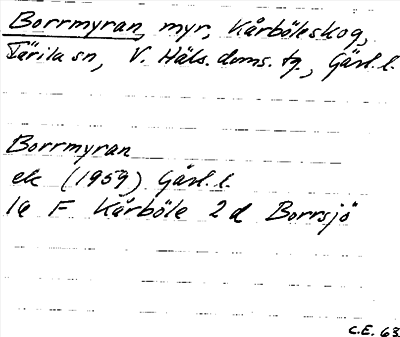 Borrmyran, myr, Kårböleskog,
Färila sn, V. Häls. doms. tg, Gävl. l.
Borrmyran
ek (1959) Gävl. l.
16 F Kårböle 2 d Borrsjö
C.E. 63